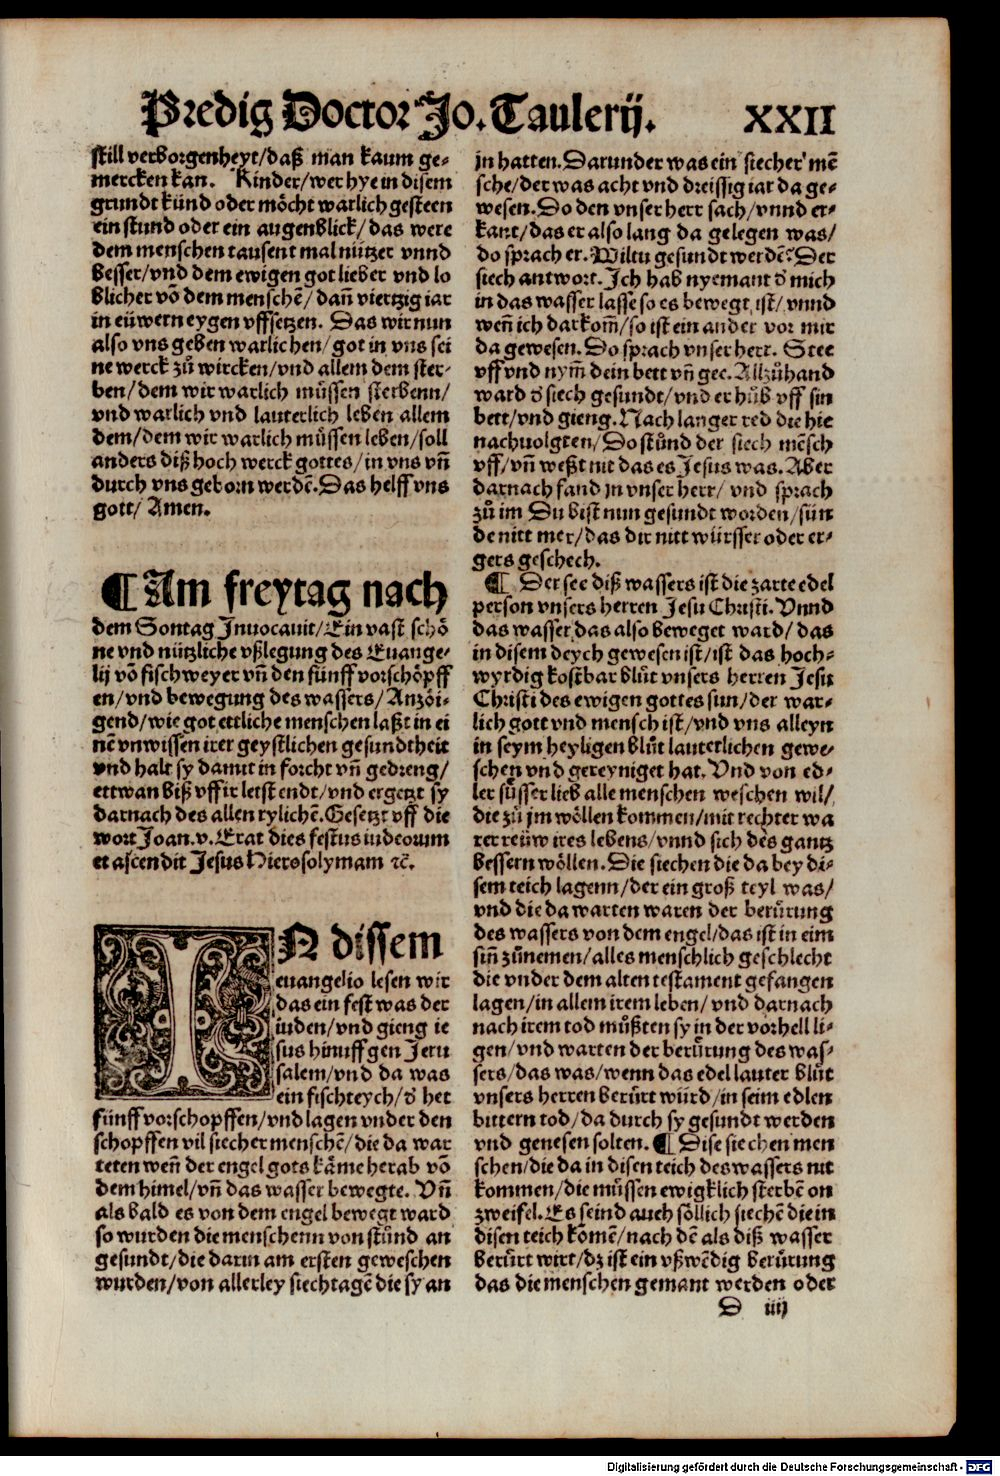 Predig Doctor Jo. Taulerij. XXII
still verborgenheyt/daß man kaum ge-
mercken kan. Kinder/wer hye in disem
grundt künd oder möcht warlich gesteen
ein stund oder ein augenblick/das were
dem menschen tausent mal nützer vnnd
besser/vnd dem ewigen got lieber vnd lo
blicher võ dem menschẽ/dañ viertzig iar
in eüwern eygen vffsetzen. Das wir nun
also vns geben warlichen/got in vns sei
ne werck zů wircken/vnd allem dem ster-
ben/dem wir warlich müssen sterbenn/
vnd warlich vnd lauterlich leben allem
dem/dem wir warlich müssen leben/soll
anders diß hoch werck gottes/in vns vñ
durch vns geborn werdẽ. Das helff vns
gott/Amen.
¶ Am freytag nach
dem Sontag Inuocauit/Ein vast schö
ne vnd nützliche vßlegung des Euange-
lij võ fischweyer vñ den fünff vorschöpff
en/vnd bewegung des wassers/Anzöi-
gend/wie got ettliche menschen laßt in ei
nẽ vnwissen irer geystlichen gesundtheit
vnd halt sy damit in forcht vñ gedreng/
ettwan biß vff ir letst endt/vnd ergetzt sy
darnach des allen rylichẽ. Gesetzt vff die
wort Joan.v. Erat dies festus iudeorum
et ascendit Jesus Hierosolymam ⁊c̃.
IN dissem
euangelio lesen wir
das ein fest was der
iuden/vnd gieng ie
sus hinuff gen Jeru
salem/vnd da was
ein fischteych/d̕ het
fünff vorschopffen/vnd lagen vnder den
schopffen vil siecher menschẽ/die da war
teten weñ der engel gots käme herab võ
dem himel/vñ das wasser bewegte. Vñ
als bald es von dem engel bewegt ward
so wurden die menschenn von stůnd an
gesundt/die darin am ersten geweschen
wurden/von allerley siechtagẽ die sy an
jn hatten. Darunder was ein siecher mẽ
sche/der was acht vnd dreissig iar da ge-
wesen. So den vnser herr sach/vnnd er-
kant/das er also lang da gelegen was/
do sprach er. Wiltu gesundt werdẽ? Der
siech antwort. Ich hab nyemant d̕ mich
in das wasser lasse so es bewegt ist/vnnd
weñ ich dar kom̃/so ist ein ander vor mir
da gewesen. Do sprach vnser herr. Stee
vff vnd nym̃ dein bett vñ gee. Allzůhand
ward d̕ siech gesundt/vnd er hůb vff sin
bett/vnd gieng. Nach langer red die hie
nachuolgten/Do stůnd der siech mẽsch
vff/vñ weßt nit das es Jesus was. Aber
darnach fand jn vnser herr/vnd sprach
zů im Du bist nun gesundt worden/sün
de nitt mer/das dir nitt würsser oder er-
gers geschech.
¶ Der see diß wassers ist die zarte edel
person vnsers herren Jesu Christi. Vnnd
das wasser das also beweget ward/das
in disem deych gewesen ist/ist das hoch-
wyrdig kostbar blůt vnsers herren Jesu
Christi des ewigen gottes sun/der war-
lich gott vnd mensch ist/vnd vns alleyn
in seym heyligen blůt lauterlichen gewe-
schen vnd gereyniget hat. Vnd von ed-
ler sůsser lieb alle menschen weschen wil/
die zů jm wöllen kommen/mit rechter wa
rer reüw ires lebens/vnnd sich des gantz
bessern wöllen. Die siechen die da bey di-
sem teich lagenn/der ein groß teyl was/
vnd die da warten waren der berůrung
des wassers von dem engel/das ist in eim
siñ zůnemen/alles menschlich geschlecht
die vnder dem alten testament gefangen
lagen/in allem irem leben/vnd darnach
nach irem tod můßten sy in der vorhell li-
gen/vnd warten der berůrung des was-
sers/das was/wenn das edel lauter blůt
vnsers herren berůrt würd/in seim edlen
bittern tod/da durch sy gesundt werden
vnd genesen solten. ¶ Dise siechen men
schen/die da in disen teich des wassers nit
kommen/die müssen ewigklich sterbẽ on
zweifel. Es seind auch söllich siechẽ die in
disen teich kõmẽ/nach dẽ als diß wasser
berůrt wirt/dz ist ein vßwẽdig berůrung
das die menschen gemant werden oder
D iiij
Digitalisierung gefördert durch die Deutsche Forschungsgemeinschaft - DFG